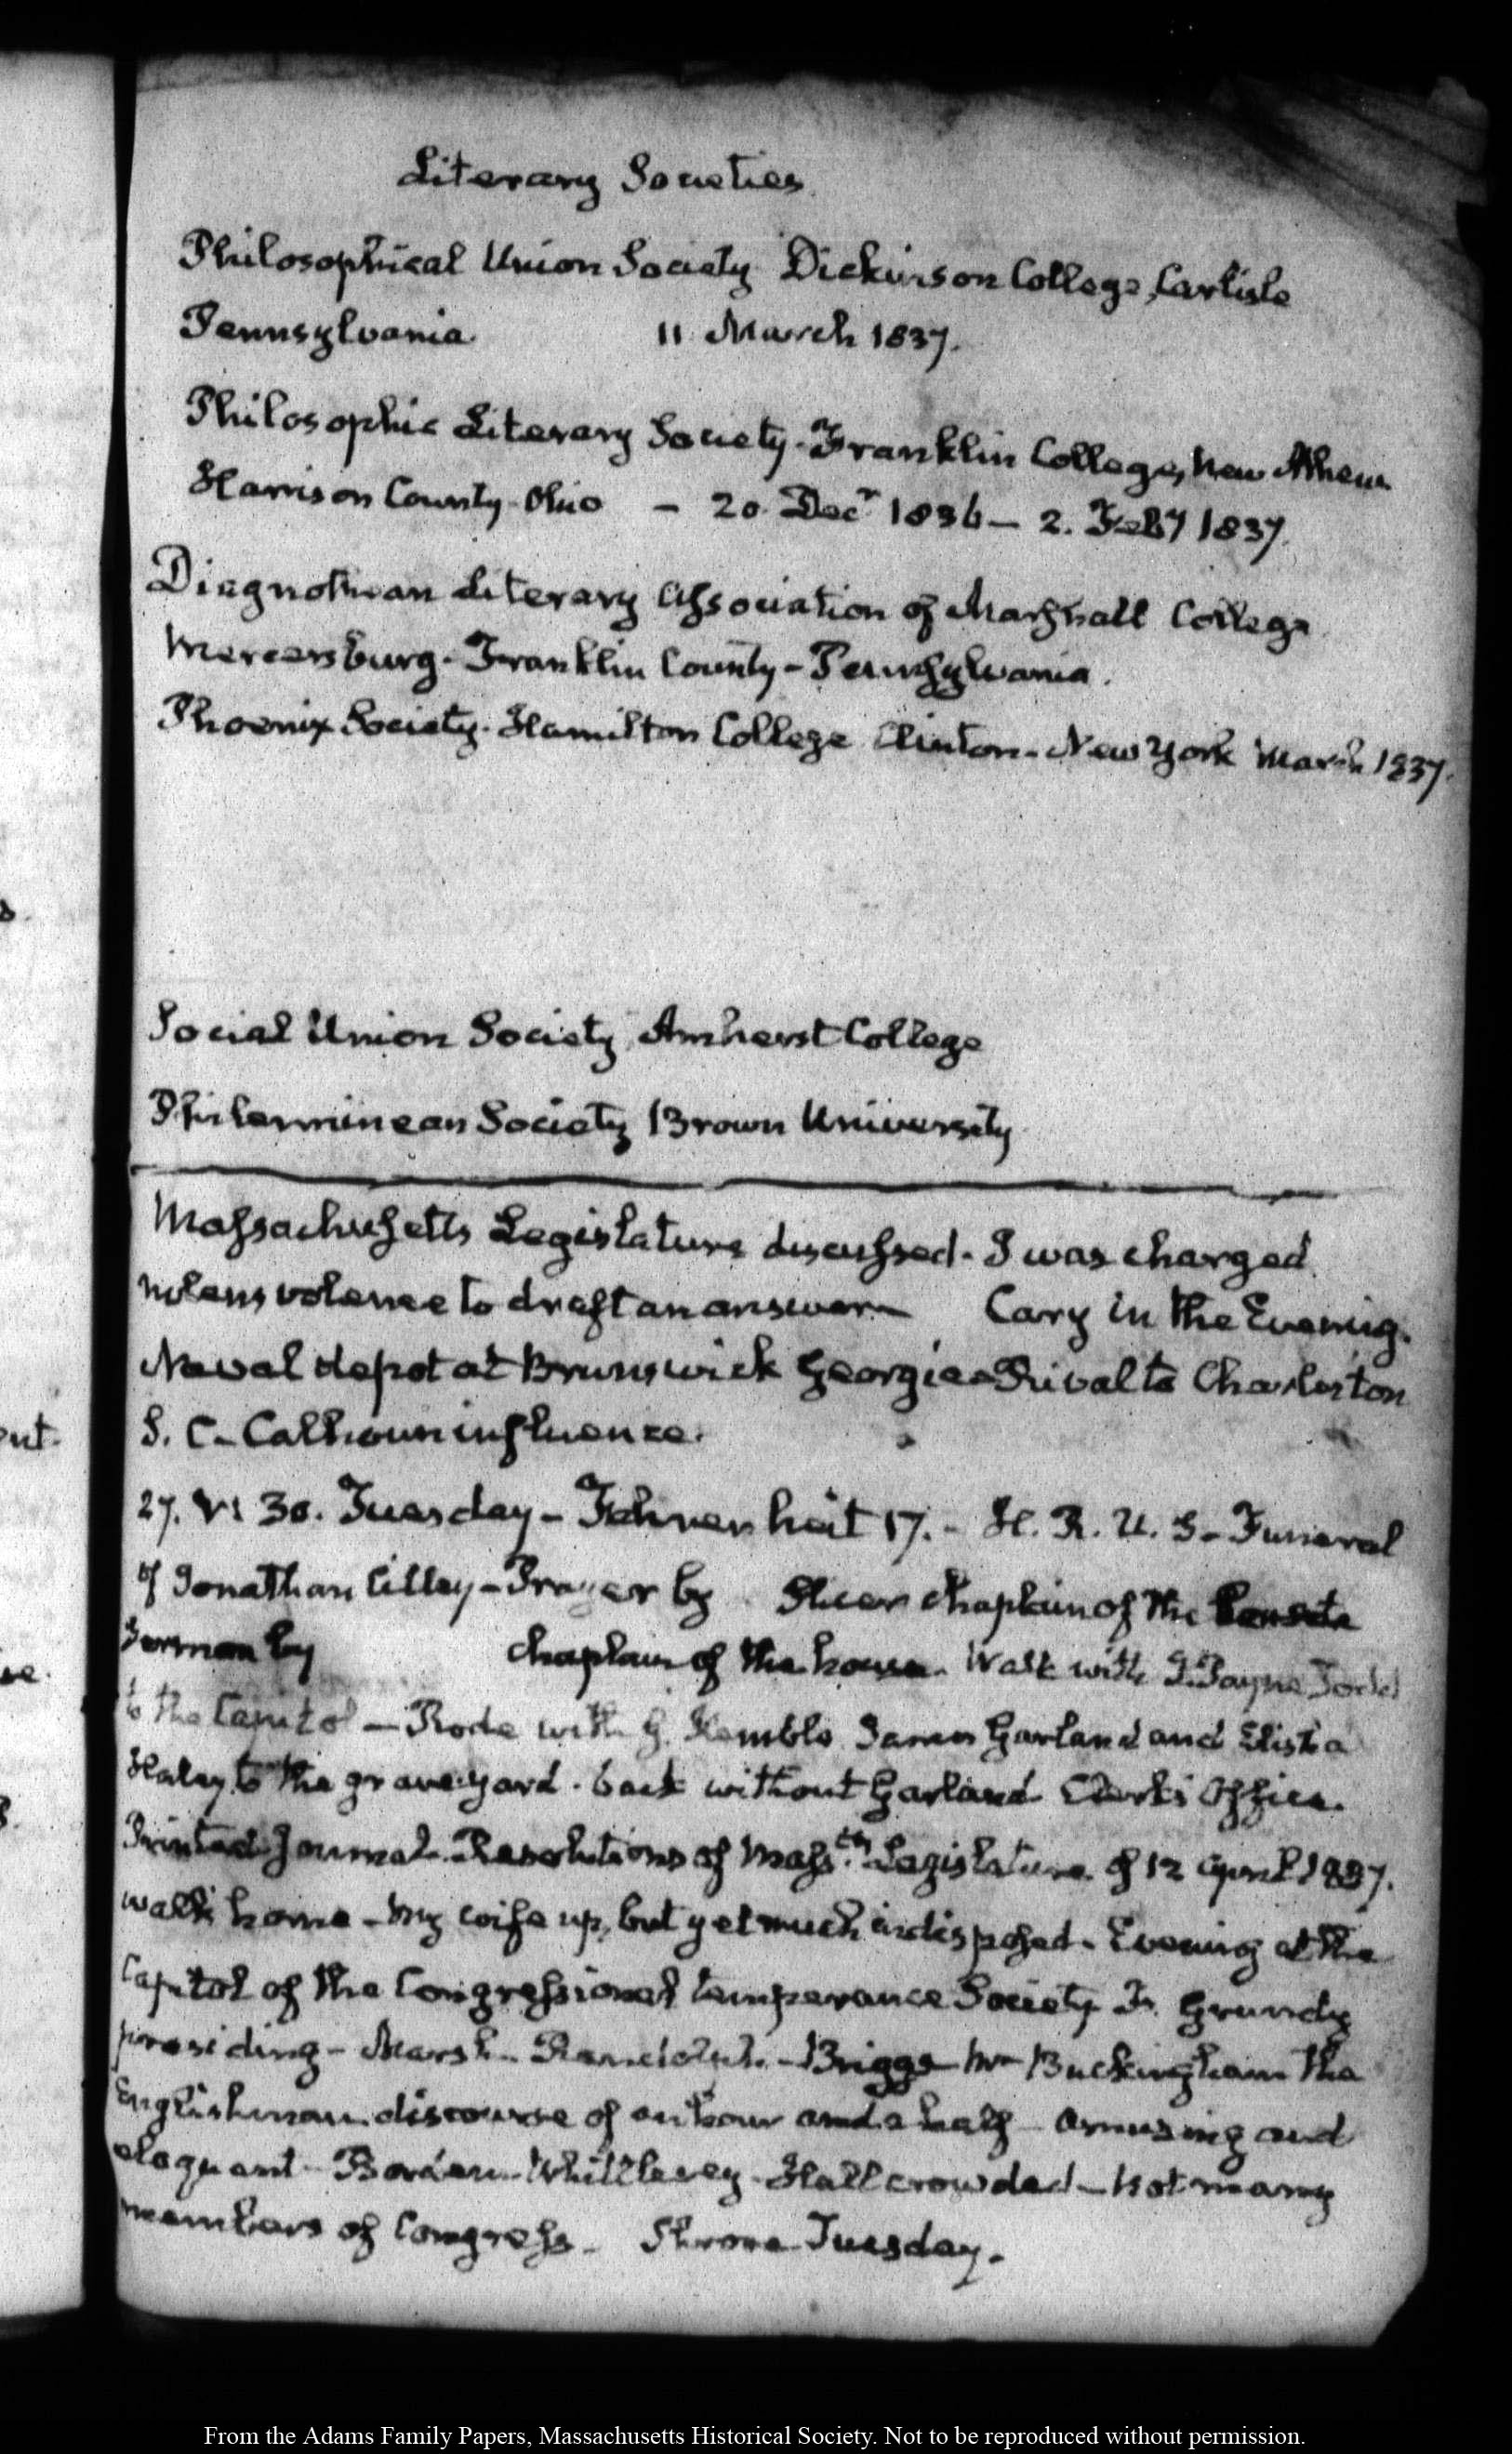 Literary Societies
Philosophical Union Society Dickinson College, Carlisle
Pennsylvania. 11 March 1837.
Philosophic Literary Society. Franklin College, New Athens
Harrison County. Ohio — 20. Decr 1836 — 2. Feby 1837.
Diagnothian Literary Association of Marshall College
Mercersburg. Franklin County — Pennsylvania.
Phoenix Society. Hamilton College Clinton. New York March 1837.
Social Union Society Amherst College
Philermenean Society Brown University
Massachusetts Legislature discussed. I was charged
nolens volence to draft an answer — Cary in the Evening.
Naval depot at Brunswick Georgia Rival to Charleston
S. C. Calhoun influence.
27. VI 30. Tuesday — Fahrenheit 17. — H. R. U. S — Funeral
of Jonathan Cilley — Prayer by Slicer chaplain of the Senate
Sermon by chaplain of the house. Walk with J. Payne Todd
to the Capitol — Rode with G. Kemble James Garland and Elisha
Haley to the graveyard. back without Garland Clerk's Office.
Printed Journal. Resolutions of Mass.tts Legislature of 12 April 1837.
walk home — My wife up, but yet much indisposed — Evening at the
Capitol of the Congressional temperance Society F. Grundy
presiding — Marsh. Randolph — Briggs — Mr Buckingham the
Englishman. discourse of an hour and a half — amusing and
eloquent — Borden — Whittlesey. Hall crowded — not many
members of Congress — Shrove Tuesday.
ut.
From the Adams Family Papers, Massachusetts Historical Society. Not to be reproduced without permission.